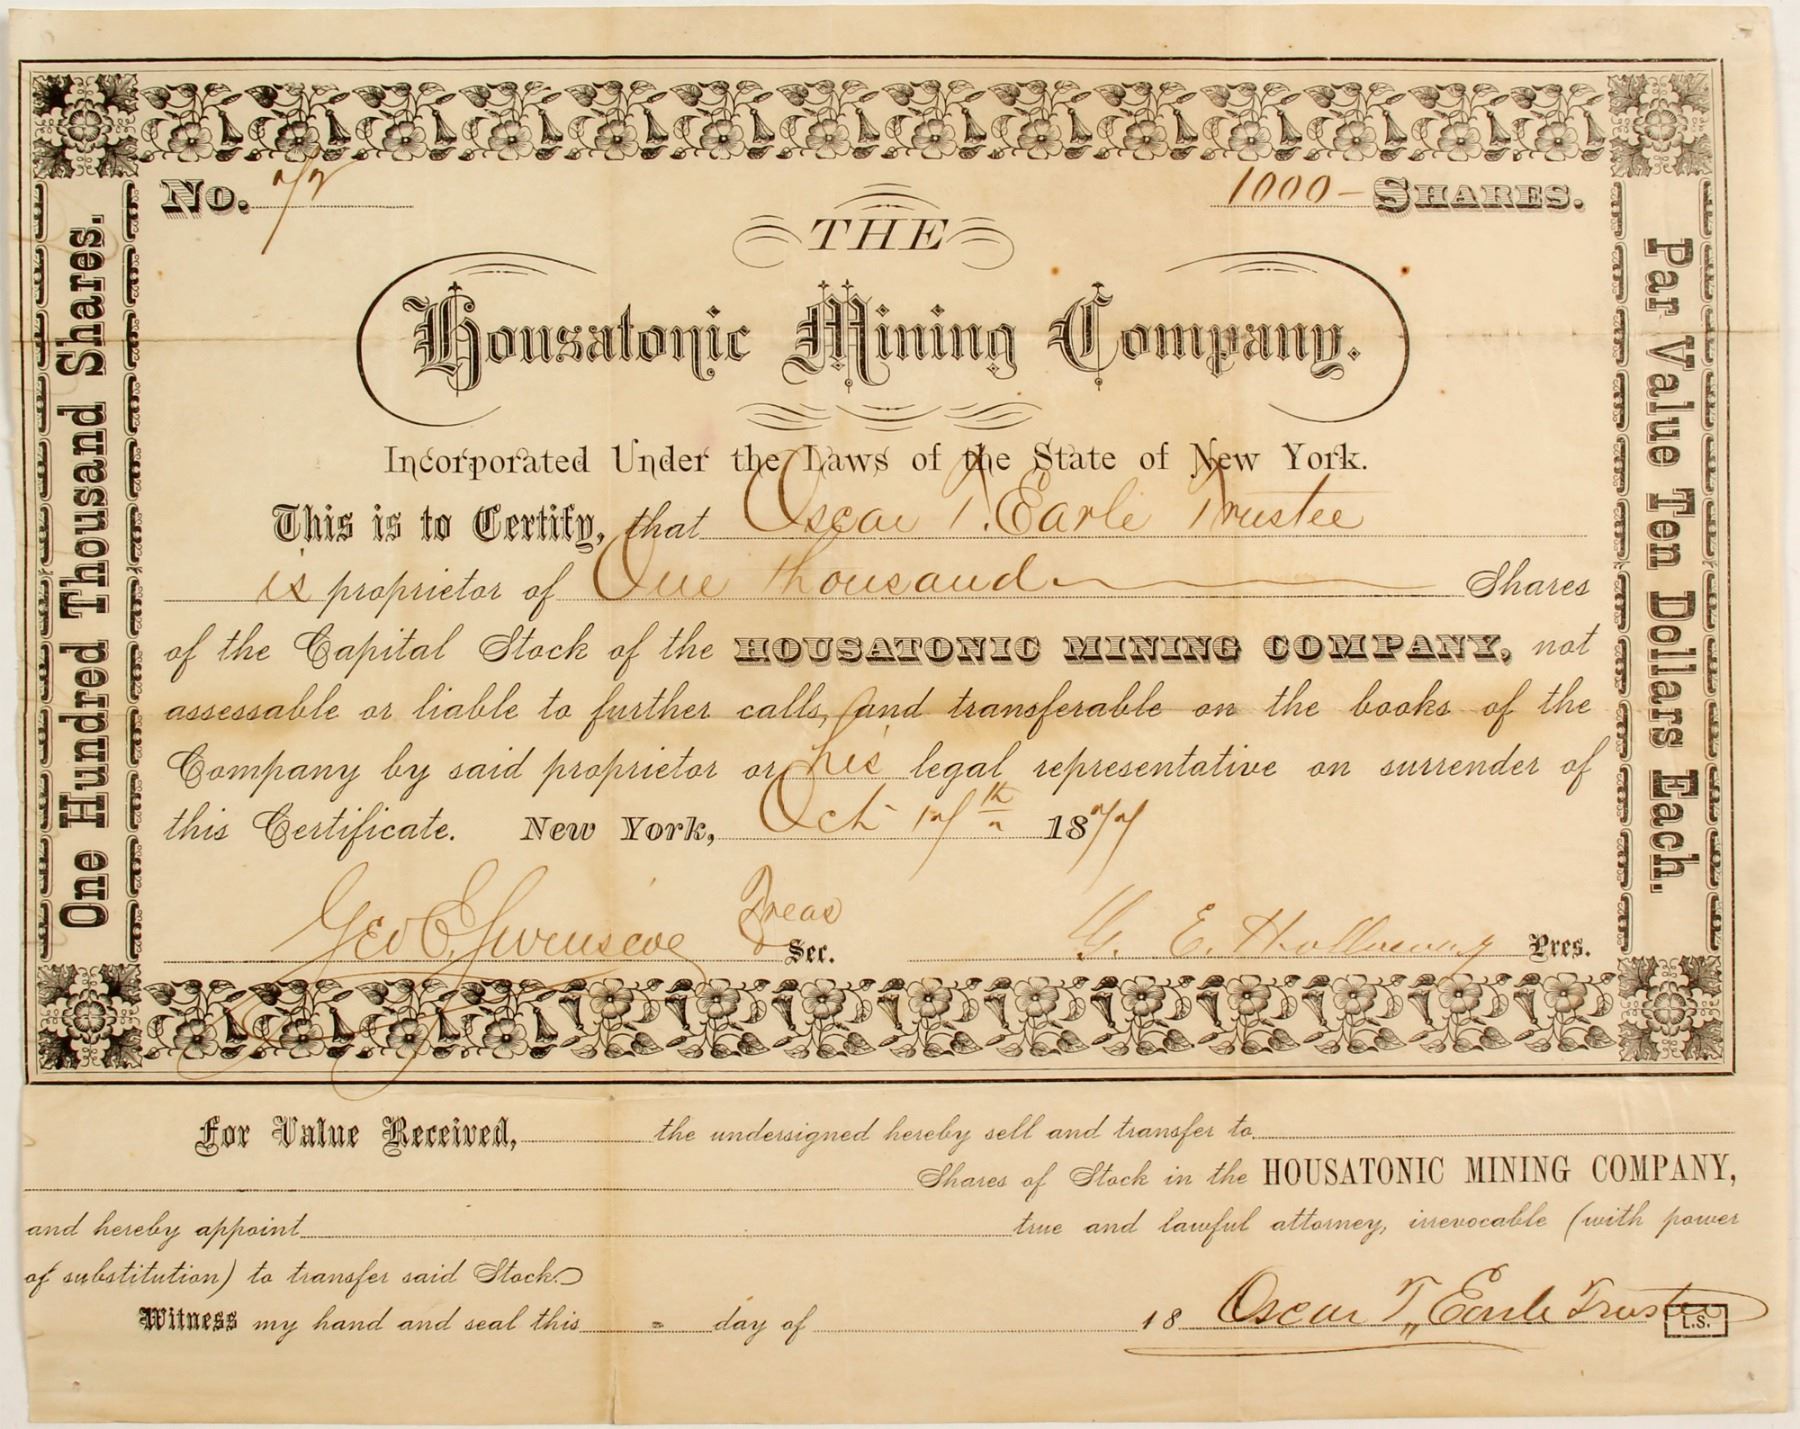 No. 72
1000 – Shares.
THE
Housatonic Mining Company.
Incorporated Under the Laws of the State of New York.
This is to Certify, that Oscar T. Earle Trustee
is proprietor of One thousand Shares
of the Capital Stock of the HOUSATONIC MINING COMPANY, not
assessable or liable to further calls, and transferable on the books of the
Company by said proprietor or his legal representative on surrender of
this Certificate. New York, Oct 17th 1877
Geo E. Treas Sec.
G. E. Holloway Pres.
One Hundred Thousand Shares.
Par Value Ten Dollars Each.
For Value Received, the undersigned hereby sell and transfer to
Shares of Stock in the HOUSATONIC MINING COMPANY,
and hereby appoint true and lawful attorney, irrevocable (with power
of substitution) to transfer said Stock.
Witness my hand and seal this day of 18 Oscar T. Earle Trustee
L.S.